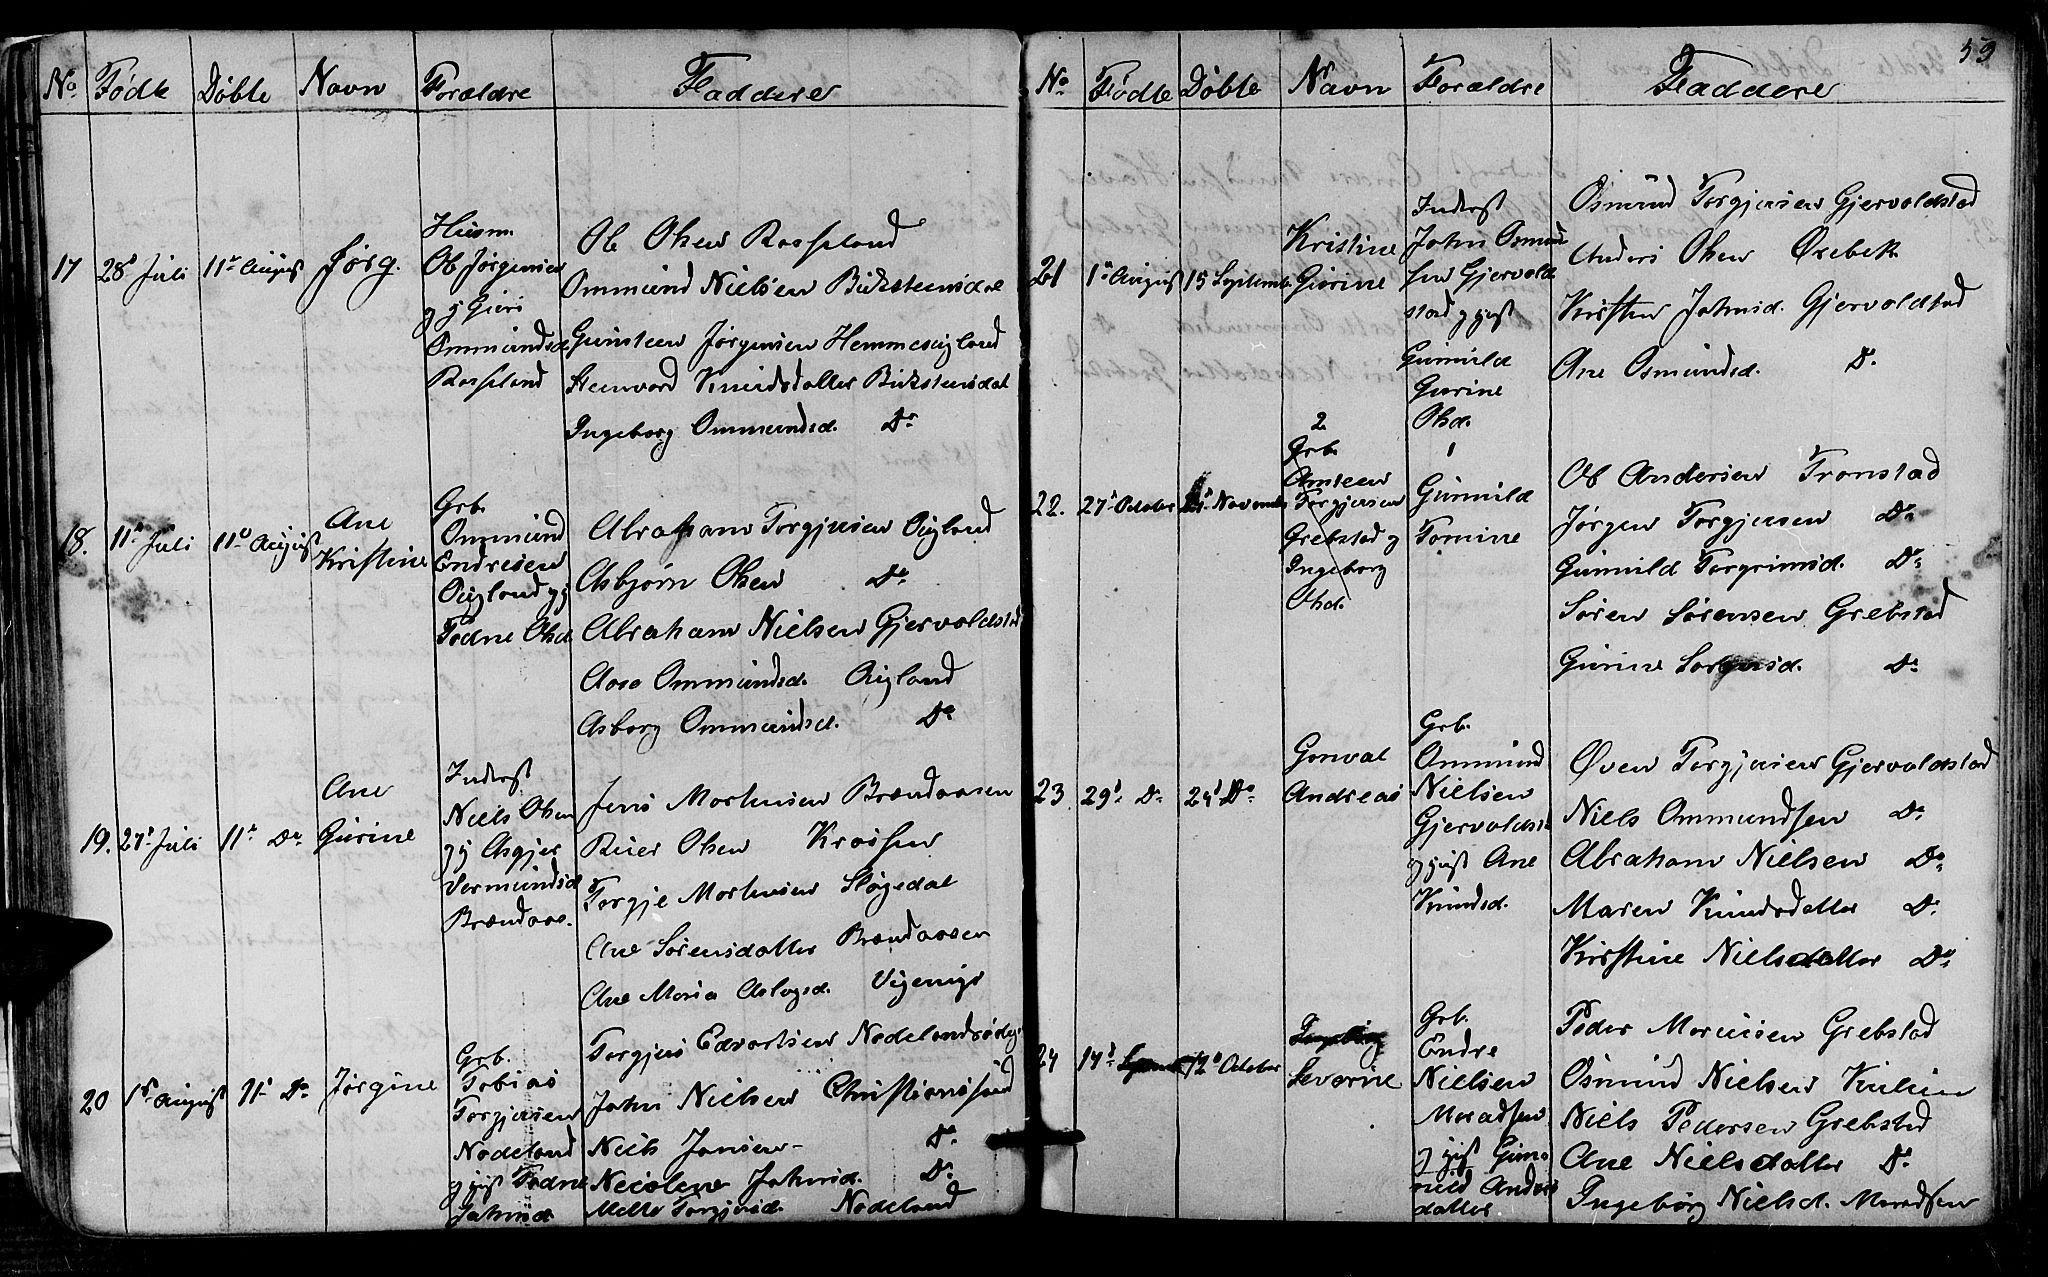 No Fødte Døbte Navn Forældre Faddere
17 28de Juli 11te August Jørg.
Huusm.
Ole Jørgensen
og Guri
Ommundsd
Rosseland
Ole Olsen Rosseland
Ommund Nielsen Birketeinsdal
Gunsteen Jørgensen Hemmesigland
Steenvord Knudsdatter Birksteinsdal
Ingeborg Ommundsd. Do
18. 11te Juli 11te August Ane
Kristine
Grb.
Ommund
Endresen
Øigland og
Todne Olsd
Abraham Torgjusen Øigland
Asbjørn Olsen Do
Abraham Nielsen Gjervoldstd
Aase Ommundsd. Øigland
Asborg Ommundsd. Do
19. 27de Juli 11te Do Ane
Gurine
Inderst
Niels Olsen
og Asgjer
Vermundsd
Brændaas.
Jens Mortensen Brændaasen
Reier Olsen
Torgje Mortensen Støgedal
Ane Sørensdatter Brændaasen
Ane Maria Aslagsd.
20 1te August 11te Do Jørgine
Grb.
Tobias
Torgjusen
Nodeland
og gift Todne
Johnsd
Torgjus Edvartsen
John Nielsen Christianssand
Niels Jonsen - Do
Nicolene Johnsd. Do
Mette Torgjusd. Nodeland
59
No Fødte Døbte Navn Forældre Faddere
21 1te August 15 Septembr Kristine
Gurine
Inderst
John Osmun
sen Gjervold
stad og gift
Gunnild
Gurine
Olsd.
Osmund Torgjusen Gjervoldstad
Anders Olsen Øxebek
Kirsten Johnsd. Gjervoldstad
Ane Osmundsd. Do
22. 27de October 24de November
2
Grb.
Amteen
Torgjusen
Grebstad og
Ingeborg
Olsd.
1
Gunnild
Tomine
Ole Andersen Tronstad
Jørgen Torgjusen Do
Gunnild Torgrimsd. Do
Søren Sørensen Grebstad
Gurine Do
23 29de Do 24de Do Gonval
Andreas
Grb.
Ommund
Nielsen
Gjervoldst
og gift Ane
Knudsd.
Øven Torgjusen Gjervoldstad
Niels Ommundsen Do
Abraham Nielsen Do
Maren Knudsdatter Do
Kirstine Nielsdatter Do
24 14de 12te October
Severine
Grb.
Endre
Nielsen
Moradsen
og gift Gun-
nild Anders
datter
Peder Grebstad
Osmund Nielsen
Niels Pedersen Grebstad
Ane Nielsdatter Do
Ingeborg Nielsd.